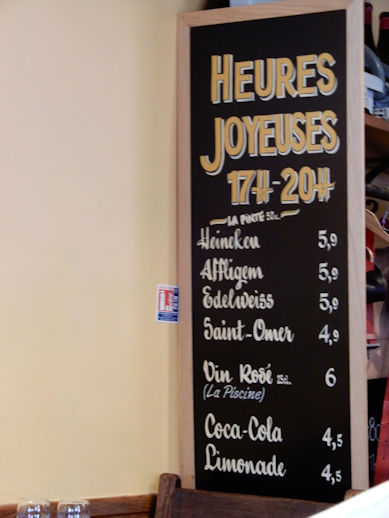 HEURES
JOYEUSES
17H-20H
LA PINTE 50cL
Heineken 5,9
Affligem 5,9
Edelweiss 5,9
Saint-Omer 4,9
Vin Rosé 25cL 6
(La Piscine)
Coca-Cola 4,5
Limonade 4,5